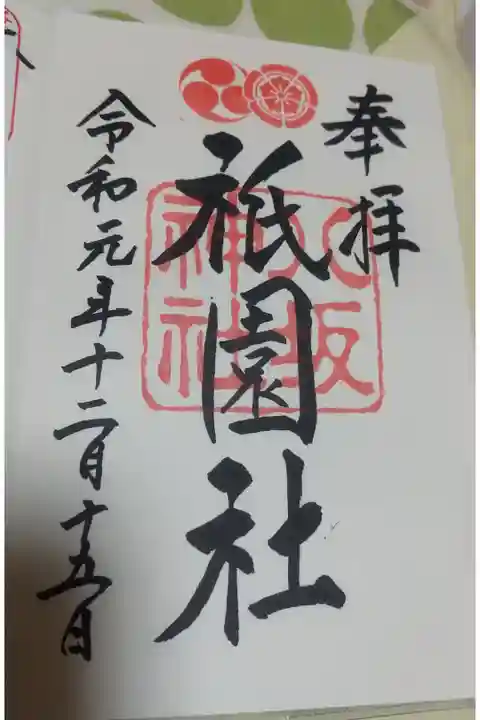 奉拝
祇園社
八坂
神社
令和元年十二月十五日